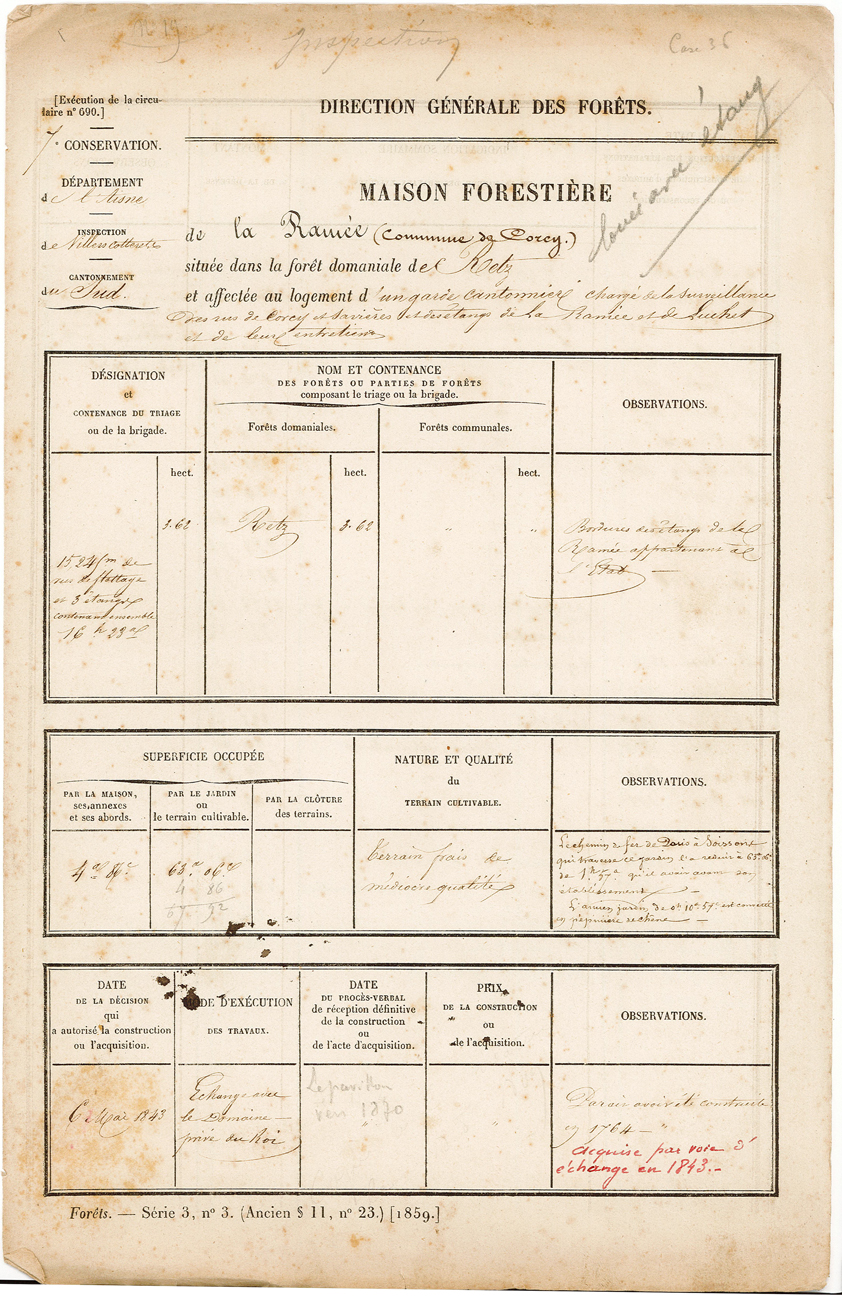 Inspection
Case 36
[Exécution de la circu-
laire nº 690.]
7e CONSERVATION.
DÉPARTEMENT
de l'Aisne
INSPECTION
de Villers Cotterêts
CANTONNEMENT
du Sud.
DIRECTION GÉNÉRALE DES FORÊTS.
loué avec étang
MAISON FORESTIÈRE
de la Ramée (Commune de Corcy.)
située dans la forêt domaniale de Retz
et affectée au logement d'un garde cantonnier chargé de la surveillance
des rus de Corcy et Savières et des étangs de La Ramée et de Luchet
et de leur entretien
DÉSIGNATION
et
CONTENANCE DU TRIAGE
ou de la brigade.
NOM ET CONTENANCE
DES FORÊTS OU PARTIES DE FORÊTS
composant le triage ou la brigade.
Forêts domaniales.
Forêts communales.
OBSERVATIONS.
hect.
hect.
hect.
3.62
Retz
3.62
"
"
Bordures des étangs de la
Ramée appartenant à
l'Etat
15,245m de
rus de flottage
et 3 étangs
contenant ensemble
16 h 23a
SUPERFICIE OCCUPÉE
PAR LA MAISON,
ses annexes
et ses abords.
PAR LE JARDIN
ou
le terrain cultivable.
PAR LA CLÔTURE
des terrains.
NATURE ET QUALITÉ
du
TERRAIN CULTIVABLE.
OBSERVATIONS.
4a 86c
63a 06c
4 86
67 92
terrain frais de
médiocre qualité
Le chemin de fer de Paris à Soissons
qui traverse ce jardin l'a réduit à 63a 06c
de 1h 57a qu'il avait avant son
établissement
L'ancien jardin de 0h 10a 57c est converti
en pépinière de chêne
DATE
DE LA DÉCISION
qui
a autorisé la construction
ou l'acquisition.
MODE D'EXÉCUTION
DES TRAVAUX.
DATE
DU PROCÈS-VERBAL
de réception définitive
de la construction
ou
de l'acte d'acquisition.
PRIX
DE LA CONSTRUCTION
ou
de l'acquisition.
OBSERVATIONS.
6 Mai 1843
Echange avec
le Domaine
privé du Roi
Le pavillon
vers 1870
"
"
Parait avoir été construite
en 1764 — "
acquise par voie d'
échange en 1843.-
Forêts. — Série 3, nº 3. (Ancien § 11, nº 23.) [1859.]